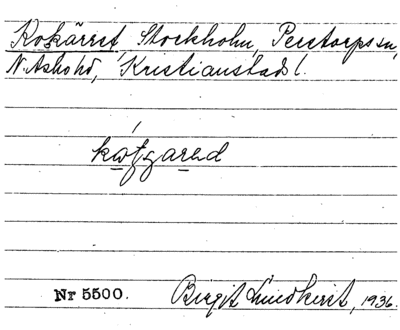 Kokärret, Stockholm, Perstorps sn,
N. Åsbo hd, Kristianstads l.
Nr 5500. Birgit Lindkvist, 1936.